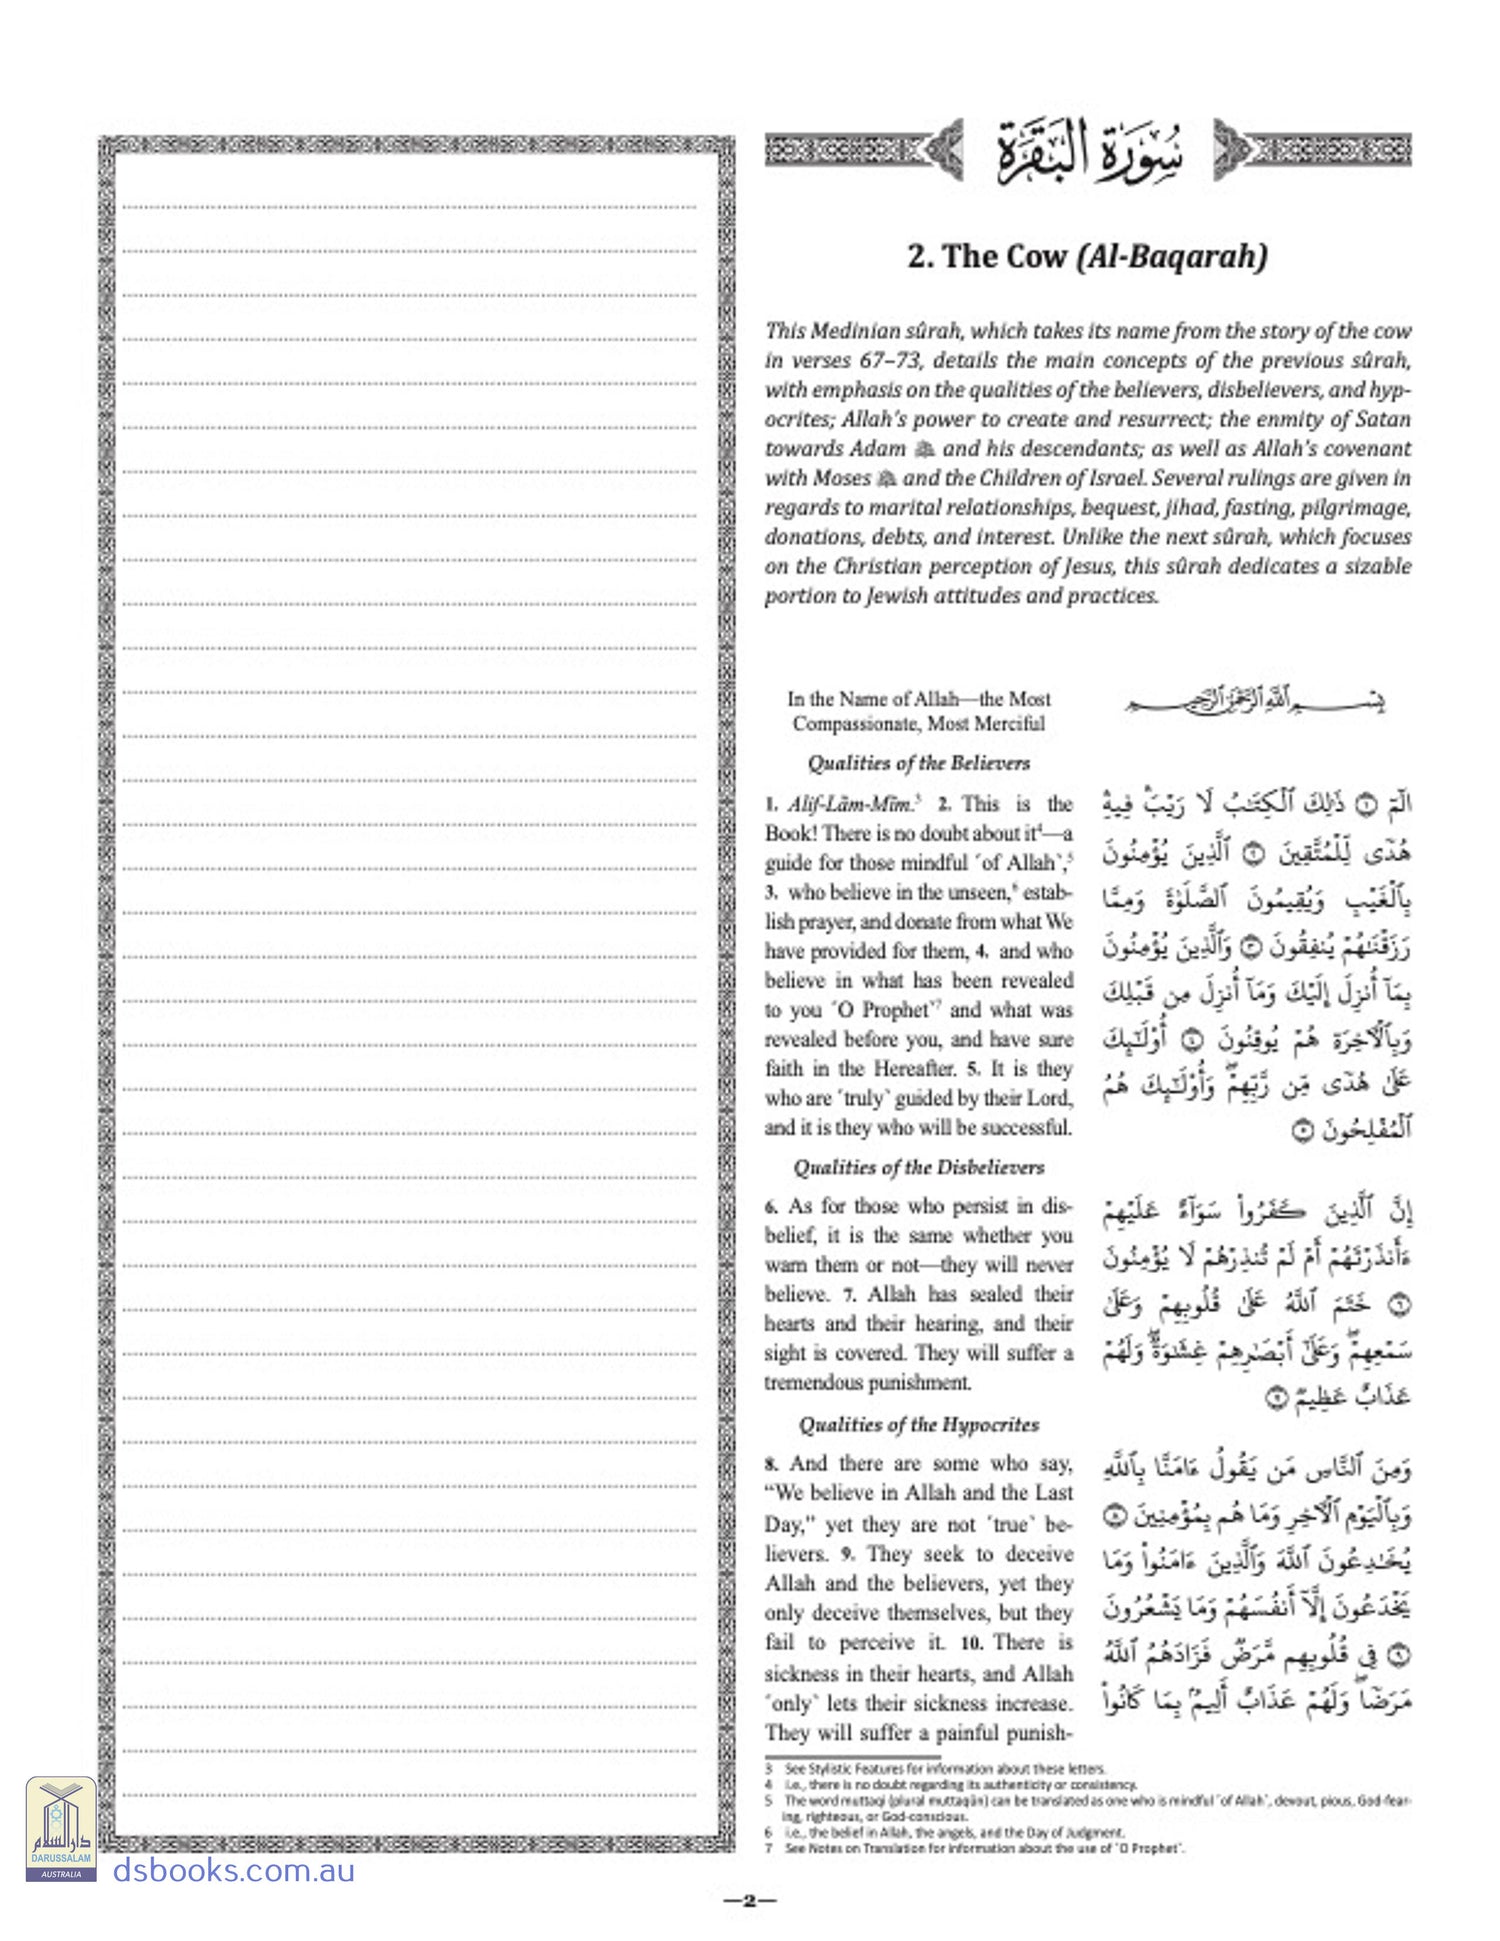 سُورَةُ الْبَقَرَةِ
2. The Cow (Al-Baqarah)
This Medinian sûrah, which takes its name from the story of the cow
in verses 67–73, details the main concepts of the previous sûrah,
with emphasis on the qualities of the believers, disbelievers, and hyp-
ocrites; Allah's power to create and resurrect; the enmity of Satan
towards Adam and his descendants; as well as Allah's covenant
with Moses and the Children of Israel. Several rulings are given in
regards to marital relationships, bequest, jihad, fasting, pilgrimage,
donations, debts, and interest. Unlike the next sûrah, which focuses
on the Christian perception of Jesus, this sûrah dedicates a sizable
portion to Jewish attitudes and practices.
In the Name of Allah—the Most
Compassionate, Most Merciful
Qualities of the Believers
1. Alif-Lãm-Mĩm.³ 2. This is the
Book! There is no doubt about it⁴—a
guide for those mindful ˹of Allah˺,⁵
3. who believe in the unseen,⁶ estab-
lish prayer, and donate from what We
have provided for them, 4. and who
believe in what has been revealed
to you ˹O Prophet˺⁷ and what was
revealed before you, and have sure
faith in the Hereafter. 5. It is they
who are ˹truly˺ guided by their Lord,
and it is they who will be successful.
Qualities of the Disbelievers
6. As for those who persist in dis-
belief, it is the same whether you
warn them or not—they will never
believe. 7. Allah has sealed their
hearts and their hearing, and their
sight is covered. They will suffer a
tremendous punishment.
Qualities of the Hypocrites
8. And there are some who say,
“We believe in Allah and the Last
Day,” yet they are not ˹true˺ be-
lievers. 9. They seek to deceive
Allah and the believers, yet they
only deceive themselves, but they
fail to perceive it. 10. There is
sickness in their hearts, and Allah
˹only˺ lets their sickness increase.
They will suffer a painful punish-
بِسْمِ ٱللَّهِ ٱلرَّحْمَٰنِ ٱلرَّحِيمِ
الٓمٓ ١ ذَٰلِكَ ٱلْكِتَٰبُ لَا رَيْبَۛ فِيهِۛ
هُدًى لِّلْمُتَّقِينَ ٢ ٱلَّذِينَ يُؤْمِنُونَ
بِٱلْغَيْبِ وَيُقِيمُونَ ٱلصَّلَوٰةَ وَمِمَّا
رَزَقْنَٰهُمْ يُنفِقُونَ ٣ وَٱلَّذِينَ يُؤْمِنُونَ
بِمَآ أُنزِلَ إِلَيْكَ وَمَآ أُنزِلَ مِن قَبْلِكَ
وَبِٱلْـَٔاخِرَةِ هُمْ يُوقِنُونَ ٤ أُو۟لَٰٓئِكَ
عَلَىٰ هُدًى مِّن رَّبِّهِمْۖ وَأُو۟لَٰٓئِكَ هُمُ
ٱلْمُفْلِحُونَ ٥
إِنَّ ٱلَّذِينَ كَفَرُوا۟ سَوَآءٌ عَلَيْهِمْ
ءَأَنذَرْتَهُمْ أَمْ لَمْ تُنذِرْهُمْ لَا يُؤْمِنُونَ
٦ خَتَمَ ٱللَّهُ عَلَىٰ قُلُوبِهِمْ وَعَلَىٰ
سَمْعِهِمْۖ وَعَلَىٰٓ أَبْصَٰرِهِمْ غِشَٰوَةٌۖ وَلَهُمْ
عَذَابٌ عَظِيمٌ ٧
وَمِنَ ٱلنَّاسِ مَن يَقُولُ ءَامَنَّا بِٱللَّهِ
وَبِٱلْيَوْمِ ٱلْـَٔاخِرِ وَمَا هُم بِمُؤْمِنِينَ ٨
يُخَٰدِعُونَ ٱللَّهَ وَٱلَّذِينَ ءَامَنُوا۟ وَمَا
يَخْدَعُونَ إِلَّآ أَنفُسَهُمْ وَمَا يَشْعُرُونَ
٩ فِى قُلُوبِهِم مَّرَضٌ فَزَادَهُمُ ٱللَّهُ
مَرَضًاۖ وَلَهُمْ عَذَابٌ أَلِيمٌۢ بِمَا كَانُوا۟
3 See Stylistic Features for information about these letters.
4 i.e., there is no doubt regarding its authenticity or consistency.
5 The word muttaqi (plural muttaqûn) can be translated as one who is mindful ˹of Allah˺, devout, pious, God-fear-
ing, righteous, or God-conscious.
6 i.e., the belief in Allah, the angels, and the Day of Judgment.
7 See Notes on Translation for information about the use of ˹O Prophet˺.
دارالسلام
DARUSSALAM
AUSTRALIA
dsbooks.com.au
—2—